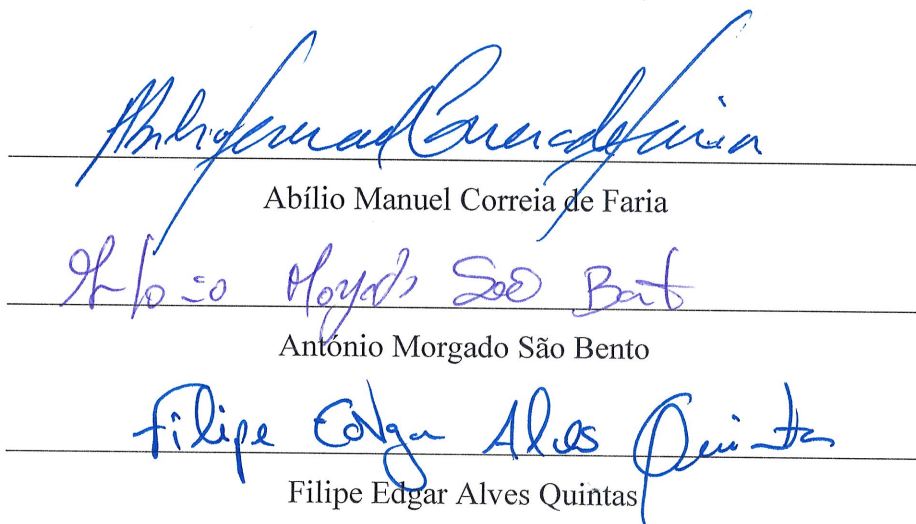 Abílio Manuel Correia de Faria
António Morgado São Bento
António Morgado São Bento
Filipe Edgar Alves Quintas
Filipe Edgar Alves Quintas